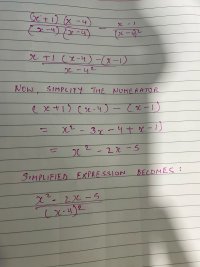 (x+1)(x-4) / (x-4)(x-4) - x-1 / (x-4)²
x+1(x-4)-(x-1) / x-4²
NOW, SIMPLIFY THE NUMERATOR
(x+1)(x-4) - (x-1)
= x² - 3x - 4 + x - 1)
= x² - 2x - 5
SIMPLIFIED EXPRESSION BECOMES:
x² - 2x - 5 / (x-4)²